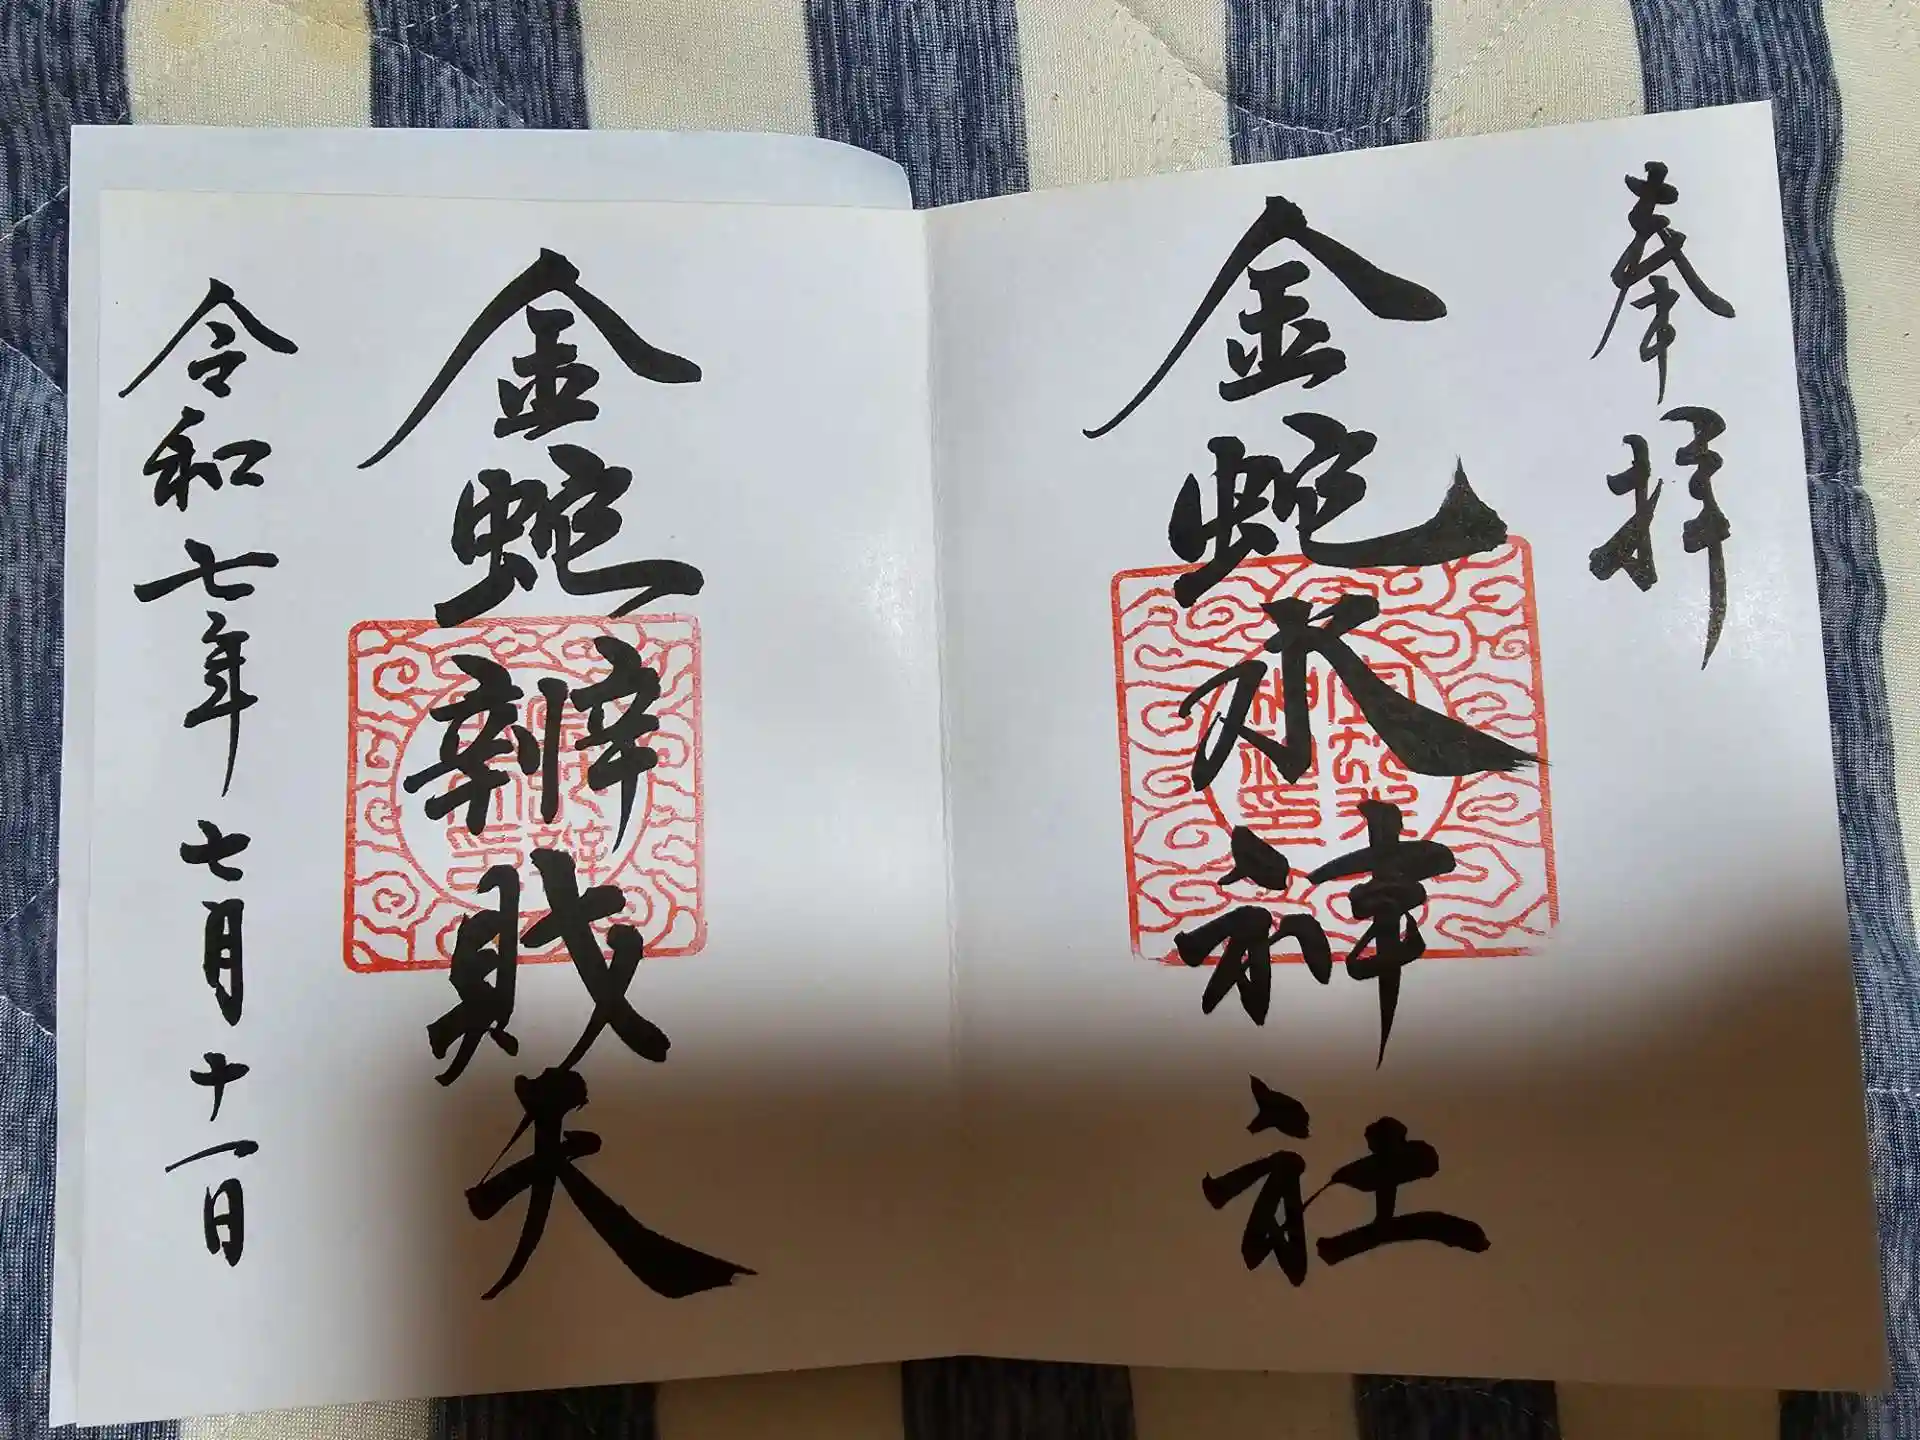 奉拝
金蛇水神社
金蛇辨財天
令和七年七月十一日